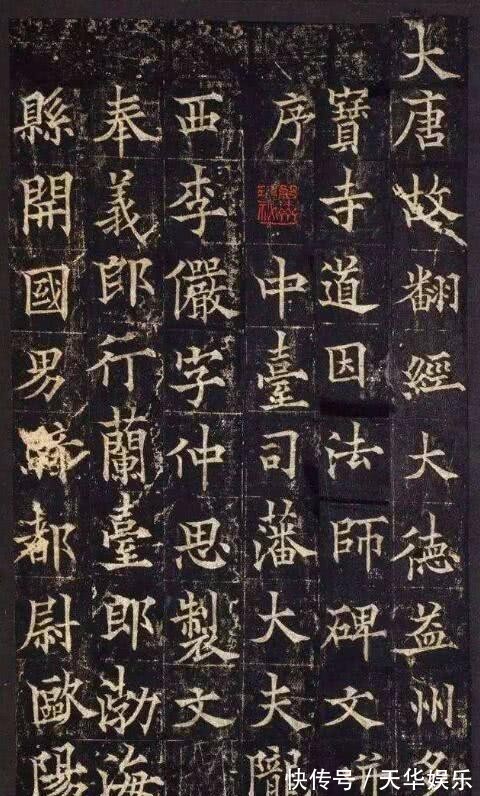 大唐故翻經大德益州多
寶寺道因法師碑文并
序 中臺司藩大夫隴
西李儼字仲思製文
奉義郎行蘭臺郎渤海
縣開國男騎都尉歐陽
快传号/天华娱乐